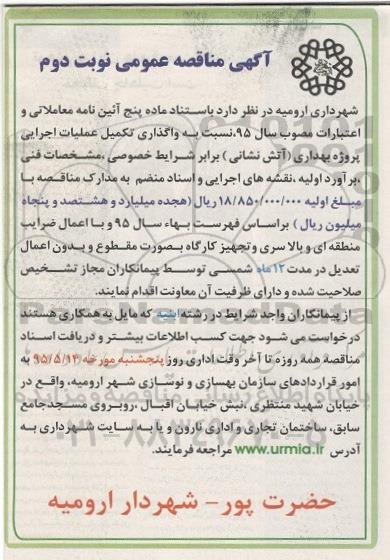 آگهی مناقصه عمومی نوبت دوم
شهرداری ارومیه در نظر دارد باستناد ماده پنج آئین نامه معاملاتی و
اعتبارات مصوب سال ۹۵،نسبت به واگذاری تکمیل عملیات اجرایی
پروژه بهداری (آتش نشانی ) برابر شرایط خصوصی ،مشخصات فنی
،برآورد اولیه ،نقشه های اجرایی و اسناد منضم به مدارک مناقصه با
مبلغ اولیه ۱۸/۸۵۰/۰۰۰/۰۰۰ریال (هجده میلیارد و هشتصد و پنجاه
میلیون ریال ) براساس فهرست بهاء سال ۹۵ و با اعمال ضرایب
منطقه ای و بالا سری وتجهیز کارگاه بصورت مقطوع و بدون اعمال
تعدیل در مدت ۱۲ماه شمسی توسط پیمانکاران مجاز تشخیص
صلاحیت شده و دارای ظرفیت آن معاونت اقدام نمایند.
از پیمانکاران واجد شرایط در رشته ابنیه که مایل به همکاری هستند
درخواست می شود جهت کسب اطلاعات بیشتر و دریافت اسناد
مناقصه همه روزه تا آخر وقت اداری روز پنجشنبه مورخه ۹۵/۵/۱۴ به
امور قراردادهای سازمان بهسازی و نوسازی شهر ارومیه، واقع در
خیابان شهید منتظری ،نبش خیابان اقبال ،روبروی مسجدجامع
سابق، ساختمان تجاری و اداری نارون و یا به سایت شهرداری به
آدرس www.urmia.ir مراجعه فرمایند.
حضرت پور - شهردار ارومیه